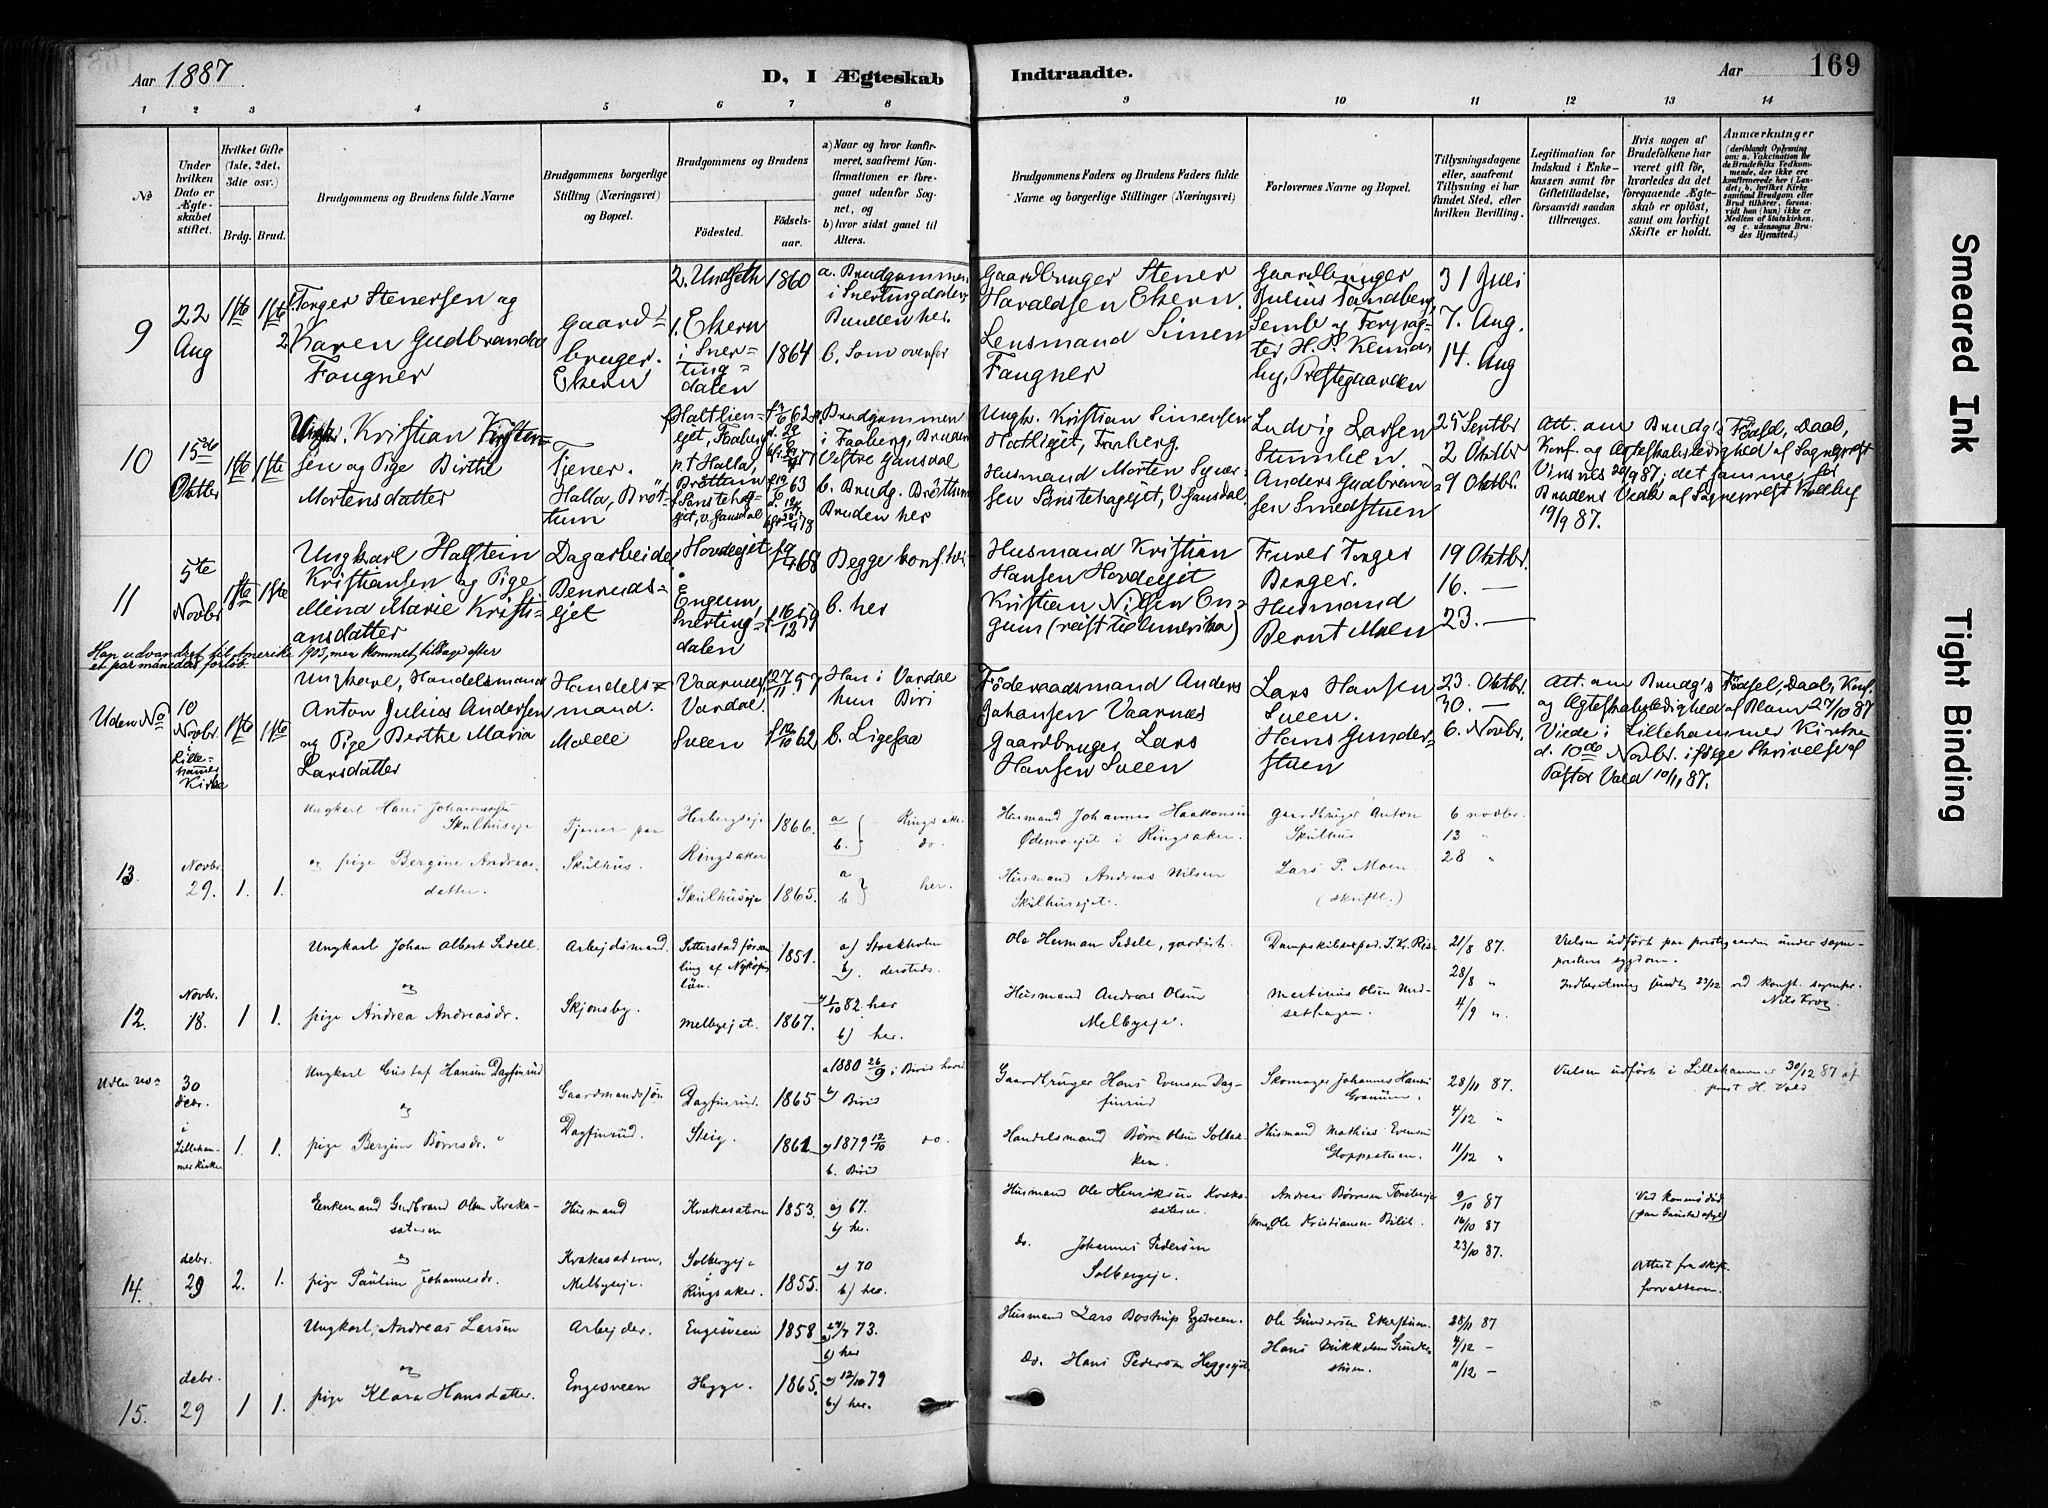 Aar 1887.
D, I Ægteskab Indtraadte.
Aar 169
1 2 3 4 5 6 7 8 9 10 11 12 13 14
No
Under hvilken Dato er Ægteskabet stiftet.
Hvilket Gifte (1ste, 2det, 3die osv.)
Brdg. Brud.
Brudgommens og Brudens fulde Navne
Brudgommens borgerlige Stilling (Næringsvei) og Bopæl.
Brudgommens og Brudens
Fødested.
Fødselsaar.
a) Naar og hvor konfirmeret, saafremt Konfirmationen er foregaaet udenfor Sognet, og
b) hvor sidst gaaet til Alters.
Brudgommens Faders og Brudens Faders fulde Navne og borgerlige Stillinger (Næringsvei)
Forlovernes Navne og Bopæl.
Tillysningsdagene eller, saafremt Tillysning ei har fundet Sted, efter hvilken Bevilling.
Legitimation for Indskud i Enkekassen samt for Giftetilladelse, forsaavidt saadan tiltrænges.
Hvis nogen af Brudefolkene har været gift før, hvorledes da det foregaaende Ægteskab er opløst, samt om lovligt Skifte er holdt.
Anmærkninger (deriblandt Oplysning om: a. Vakcination for de Brudefolks Vedkommende, der ikke ere konfirmerede her i Landet; b. hvilket Kirkesamfund Brudgom eller Brud tilhører, forsaavidt han (hun) ikke er Medlem af Statskirken, og c. udensogns Brudes Hjemsted.)
9
22 Aug
1ste 1ste
Torger Stenersen og
2 Karen Gudbranda
Fougner
Gaardbruger.
Ekern
2. Undseth
1. Ekern i Snertingdalen
1860
1864
a. Brudgommen i Snertingdalen, Bruden her.
b. Som ovenfor
Gaardbruger Stener Haraldsen Ekern.
Lensmand Simen Fougner
Gaardbruger Julius Sandberg, Semb og Forpagter H. P. Kemdsby, Prestegaarden
31 Juli
7. Aug.
14. Aug
10
15de Oktbr
1ste 1ste
Ungk. Kristian Kristensen og Pige Birthe
Mortensdatter
Tjener.
Halla, Brøttum
Hatlieneget, Faaberg
p.t Halla, Brøttum
f. Sanstehageget, v. Gausdal
a. Brudgommen i Faaberg, Bruden Vestre Gausdal
b. Brudg. Brøttum Bruden her
Ungk. Kristian Simensen Hatliget, Faaberg.
Husmand Morten Syversen Sanstehageget, V. Gausdal
Ludvig Larsen Stumlien.
Anders Gudbrandsen Smedstuen
25 Septbr
2 Oktbr
9 Oktbr.
Att. om Brudg's Fødsel, Daab, Konf. og Ægteskabsledighed af Sognepræst Vinsnes 20/9 87; det samme for Brudens Vedk. af Sognepræst Kolbye 19/9 87.
11
5te Novbr
1ste 1ste
Ungkarl Halstein
Kristiansen og Pige
Mina Marie Kristiansdatter
Dagarbeider
Bennedsejet
Hovdeejet
Engum, Snertingdalen
f. 9/4 68
f. 16/12 59
Begge konf. her
b. her
Husmand Kristian Hansen Hovdeejet
Kristian Nilsen Engum (reist til Amerika)
Furer Torger Berger.
Husmand Bernt Moen
19 Oktbr.
16. —
23. —
Han udvandret til Amerika 1903, men kommet tilbage efter et par måneders forløb.
Uden No
10 Novbr. i Lillehammer Kirke
1ste 1ste
Ungkarl, Handelsmand
Anton Julius Andersen
og Pige Berthe Maria
Larsdatter
Handelsmand.
Molde
Vaarnes, Vardal.
Sveen
27/11 57
f 12/10 62
Han i Vardal hun Biri
b. Ligesaa
Föderaadsmand Anders Johansen Vaarnes
Gaardbruger Lars Hansen Sveen
Lars Hansen Sveen.
Hans Gunderstuen
23. Oktbr.
30. —
6. Novbr.
Att. om Brudg's Fødsel, Daab, Konf. og Ægteskabsledighed af Blom 27/10 87
Viede i Lillehammer Kirke d. 10de Novbr. ifølge Skrivelse af Pastor Vold 10/11 87.
13.
Novbr. 29.
1. 1.
Ungkarl Hans Johannessen Skulhuseje
og pige Bergine Andreasdatter.
Tjener paa Skülhus.
Herbergseje Ringsaker
Skülhüseje
1866.
1865.
a b. } Ringsaker do.
a b } her.
Husmand Johannes Haakonsen Ødemoejet i Ringsaker.
Husmand Andreas Nilsen Skülhusejet.
Gaardbruger Anton Skülhus
Lars P. Moen. (skriftl.)
6 novbr.
13 "
28 "
12.
Novbr. 18.
1 1.
Ungkarl Johan Albert Sedell.
og
pige Andrea Andreasdr.
Arbejdsmand.
Skjønsby.
Sitterstad församling af Nyköpings län.
Melbyejet.
1851.
1867.
a) Stockholm
b). dersteds.
a) 1/10 82. her
b) her.
Ole Herman Sedele, gardist.
Husmand Andreas Olsen Melbyeje.
Martinus Olsen Undsethagen.
21/8 87.
28/8 "
4/9 ".
Vielsen udført paa prestegaarden under sogneprestens sygdom.
Indberetning sendt 23/12 ved konst. sognepr. Nils Krog.
Uden no
30 debr. i Lillehammer kirke
1. 1.
Ungkarl Gustaf Hansen Dagfinrud
og
pige Bergine Børresdr.
Gaardmandssøn
Dagfinrud.
Dagfinrud.
Steig.
1865
1861
a 1880 26/9 i Biris hovd
b) Biris
a) 1879 12/10 do.
b. Biris
Gaardbruger Hans Evensen Dagfinrud
Handelsmand Børre Olsen Solbakken.
Skomager Johannes Hansen Granum.
Husmand Mathias Evensen Gloppestuen.
28/11 87.
4/12 "
11/12 "
Vielsen udført i Lillehammer 30/12 87 af prest H. Vold
14.
debr. 29
2. 1.
Enkemand Gudbrand Olsen Krakasateren
og
pige Paüline Johannesdr.
Husmand
Krakasateren,
Melbyeje.
Krakasateren
Solbergeje i Ringsaker.
1853.
1855.
a) 67.
b) her.
a) 70
b) her.
Husmand Ole Henriksen Krakasateren.
Do. Johannes Pedersen Solbergeje.
Andreas Børresen
Ole Kristiansen Bilit.
9/10 87
16/10 87
23/10 87.
Ved konens død
Attest fra skifteforvalteren.
15.
debr. 29
1 1.
Ungkarl, Andreas Larsen
og
pige Klara Hansdatter.
Arbejder.
Engesveen
Engesveen
Hegge.
1858
1865.
a) 27/7 73.
b) her
a) 12/10 79
b) her.
Husmand Lars Bostrup Engesveen.
Do. Hans Pedersen Heggejet
Ole Gündersen Ekerstuen.
Hans Mikkelsen Gunderstuen.
28/11 87
4/12 –
11/12 –
Smeared Ink
Tight Binding